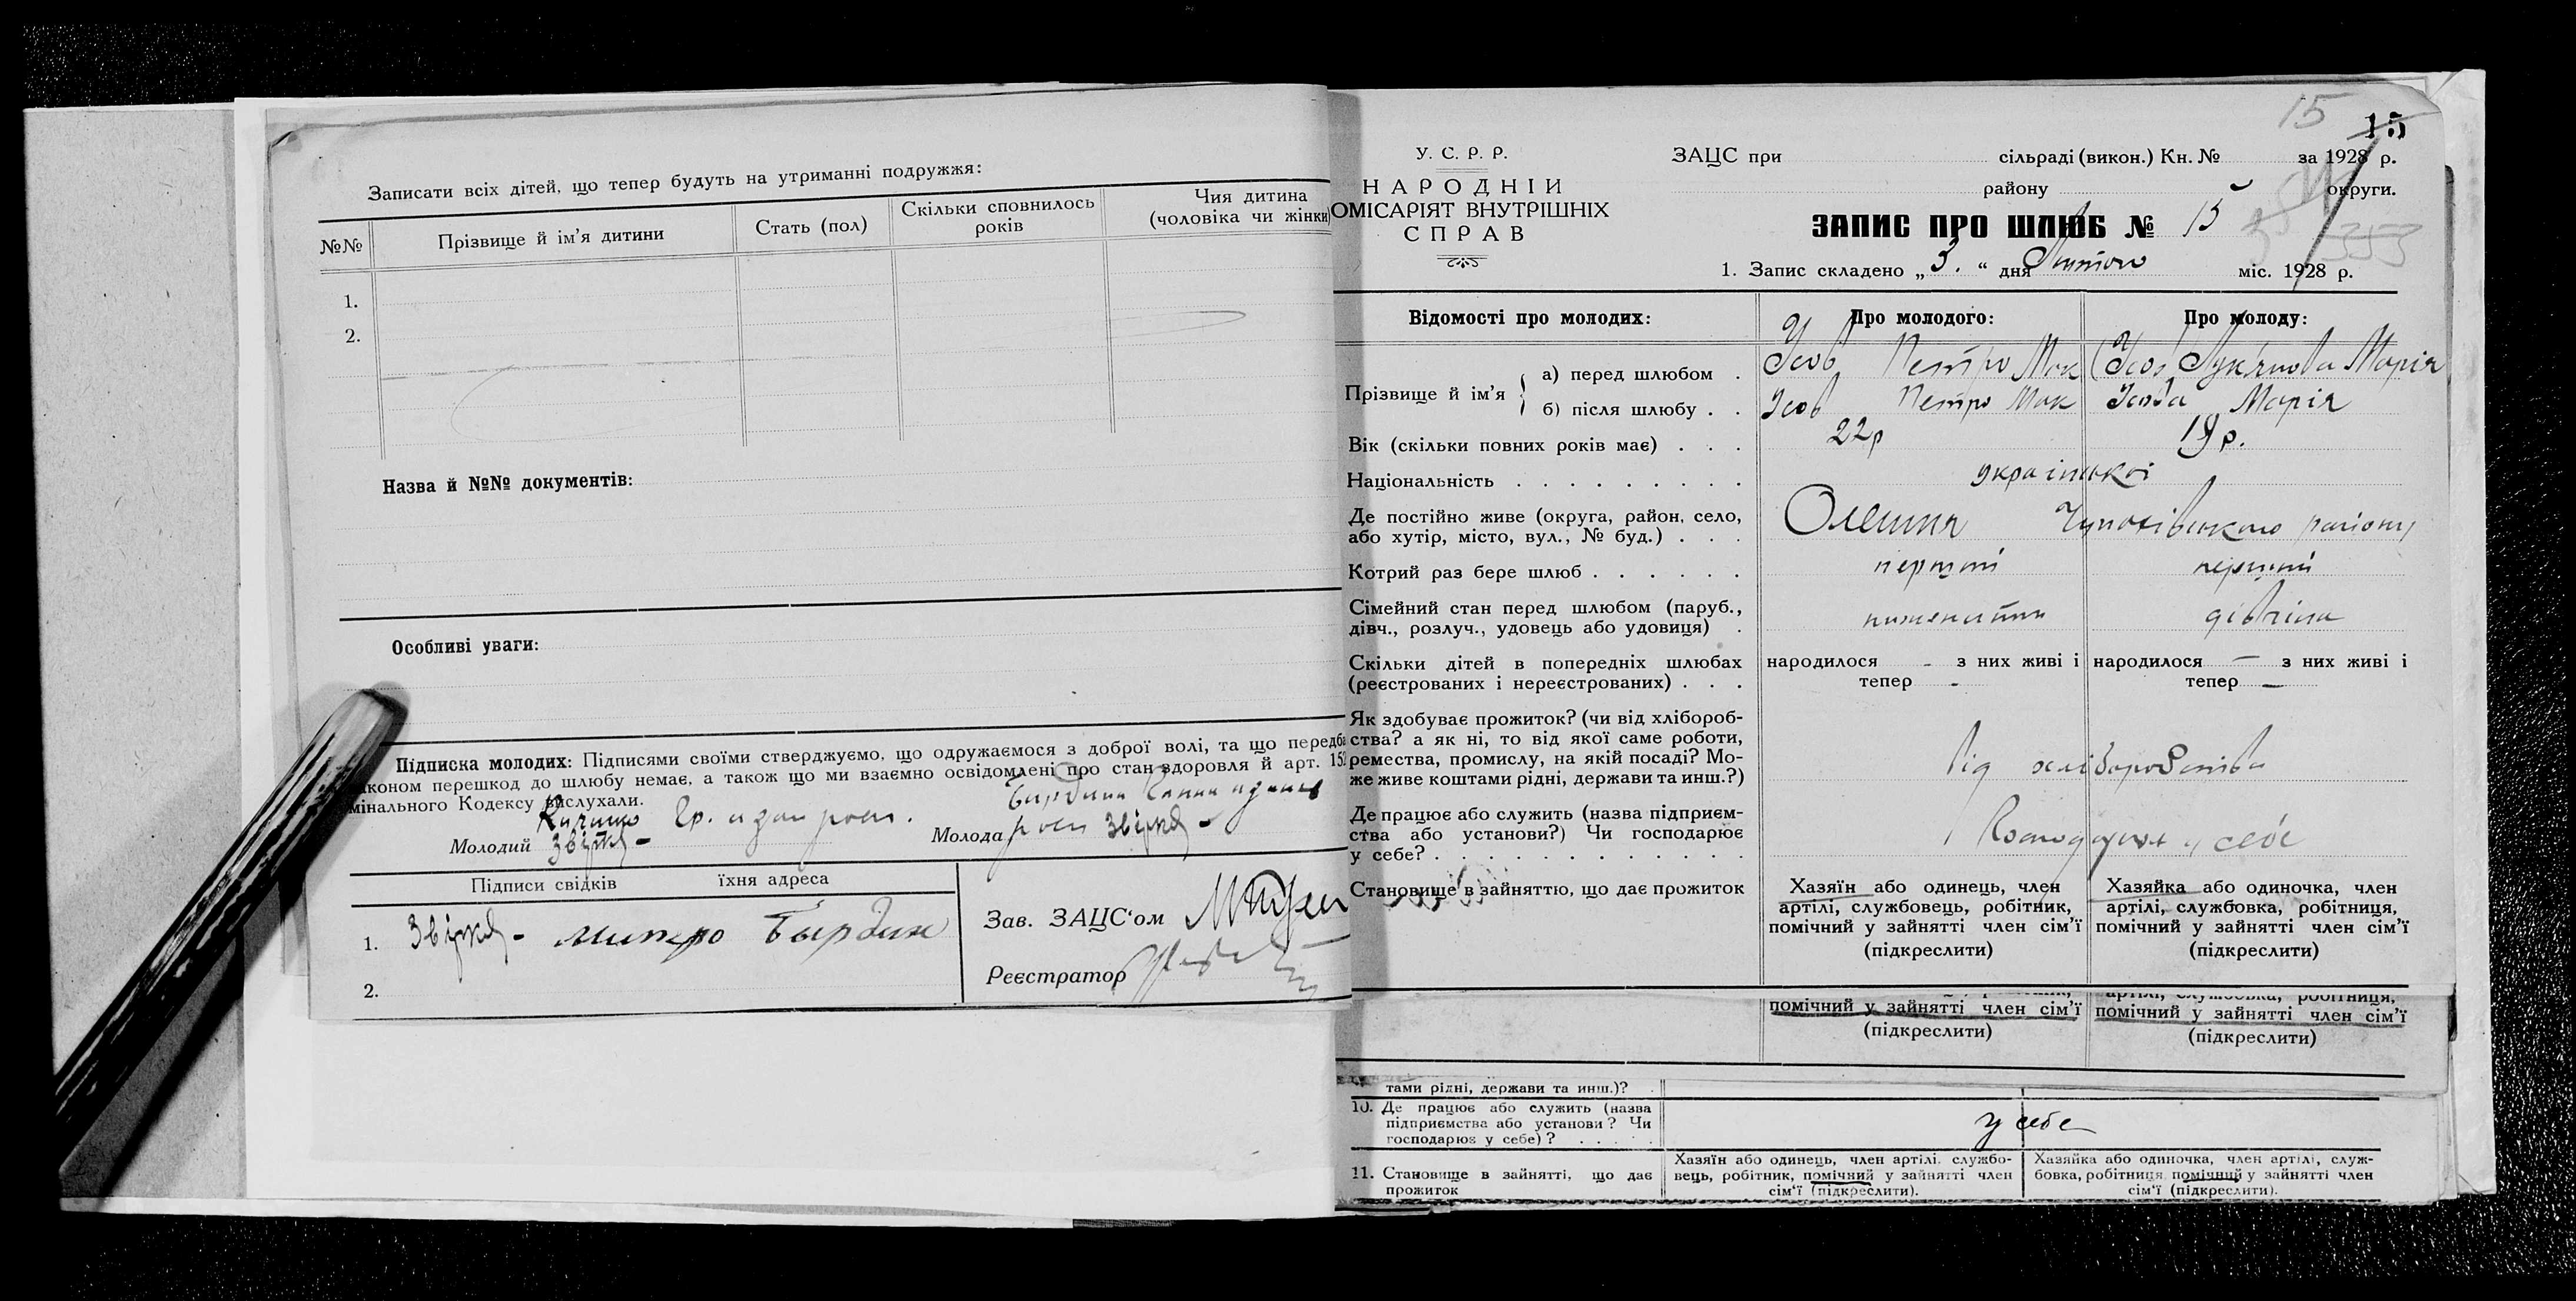 Записати всіх дітей, що тепер будуть на утриманні подружжя:
№№
Прізвище й ім'я дитини
Стать (пол)
Скільки сповнилось
років
Чия дитина
(чоловіка чи жінки)
1.
2.
Назва й №№ документів:
Особливі уваги:
Підписка молодих: Підписями своїми стверджуємо, що одружаємося з доброї волі, та що передба
аконом перешкод до шлюбу немає, а також що ми взаємно освідомлені про стан здоровля й арт. 15
мінального Кодексу вислухали.
Молодий
Молода
Підписи свідків їхня адреса
1.
2.
Зав. ЗАЦС'ом
Реєстратор
15
15
У. С. Р. Р.
НАРОДНІЙ
ОМІСАРІЯТ ВНУТРІШНІХ
СПРАВ
ЗАЦС при сільраді (викон.) Кн. № за 1928 р.
району округи.
ЗАПИС ПРО ШЛЮБ № 15
353
1. Запис складено „3.“ дня Лютого міс. 1928 р.
Відомості про молодих:
Про молодого:
Про молоду:
Прізвище й ім'я
а) перед шлюбом .
Усов Петро Мак
Марія
б) після шлюбу . .
Усов Петро Мак
Усова Марія
Вік (скільки повних років має) . . .
22р
19 р.
Національність . . . . . . . . .
української
Де постійно живе (округа, район, село,
або хутір, місто, вул., № буд.) . . .
Олешня району
Котрий раз бере шлюб . . . . . .
перший
перший
Сімейний стан перед шлюбом (паруб.,
дівч., розлуч., удовець або удовиця) .
дівчина
Скільки дітей в попередніх шлюбах
(реєстрованих і нереєстрованих) . . .
народилося - з них живі і
тепер -
народилося — з них живі і
тепер —
Як здобуває прожиток? (чи від хлібороб-
ства? а як ні, то від якої саме роботи,
ремества, промислу, на якій посаді? Мо-
же живе коштами рідні, держави та инш.?)
від хліборобства
Де працює або служить (назва підприєм-
ства або установи?) Чи господарює
у себе? . . . . . . . . . . . .
у себе
Становище в зайняттю, що дає прожиток
Хазяїн або одинець, член
артілі, службовець, робітник,
помічний у зайнятті член сім'ї
(підкреслити)
Хазяйка або одиночка, член
артілі, службовка, робітниця,
помічний у зайнятті член сім'ї
(підкреслити)
помічний у зайнятті член сім'ї
(підкреслити)
артілі, службовка, робітниця,
помічний у зайнятті член сім'ї
(підкреслити)
тами рідні, держави та инш.)?
10. Де працює або служить (назва
підприємства або установи? Чи
господарює у себе)? . . . . .
у себе
11. Становище в зайнятті, що дає
прожиток
Хазяїн або одинець, член артілі, службо-
вець, робітник, помічний у зайнятті член
сім'ї (підкреслити).
Хазяйка або одиночка, член артілі, служ-
бовка, робітниця, помічний у зайнятті член
сім'ї (підкреслити).